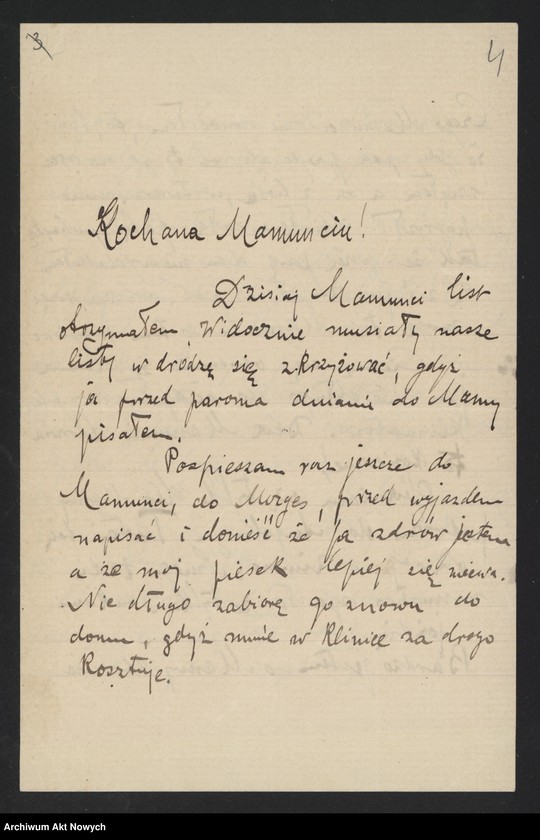 3
4
Kochana Mamunciu!
Dzisiaj Mamunci list
otrzymałem, widocznie musiały nasze
listy w drodzę się zkrzyżować, gdyż
ja przed paroma dniami do Mamy
pisałem.
Pospieszam raz jeszcze do
Mamunci, do Morges, przed wyjazdem
napisać i donieść że ja zdrów jestem
a że moj piesek lepiej się miewa.
Nie długo zabiorę go znowu do
domu, gdyż mnie w klinice za drogo
kosztuje.
Archiwum Akt Nowych